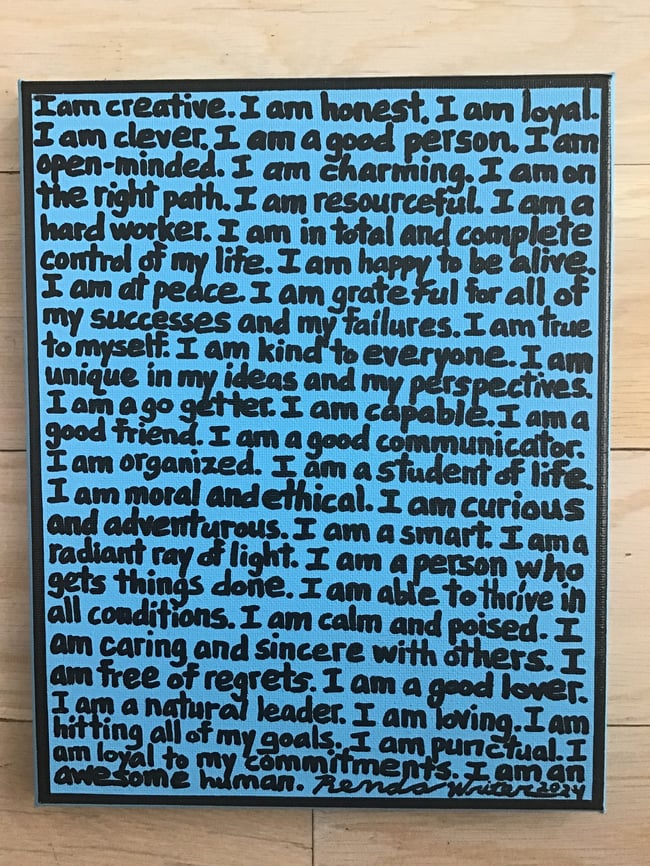 I am creative. I am honest. I am loyal.
I am clever. I am a good person. I am
open-minded. I am charming. I am on
the right path. I am resourceful. I am a
hard worker. I am in total and complete
control of my life. I am happy to be alive.
I am at peace. I am grateful for all of
my successes and my failures. I am true
to myself. I am kind to everyone. I am
unique in my ideas and my perspectives.
I am a go getter. I am capable. I am a
good friend. I am a good communicator.
I am organized. I am a student of life.
I am moral and ethical. I am curious
and adventurous. I am a smart. I am a
radiant ray of light. I am a person who
gets things done. I am able to thrive in
all conditions. I am calm and poised. I
am caring and sincere with others. I
am free of regrets. I am a good lover.
I am a natural leader. I am loving. I am
hitting all of my goals. I am punctual. I
am loyal to my commitments. I am an
awesome human. Renda Writer 2024